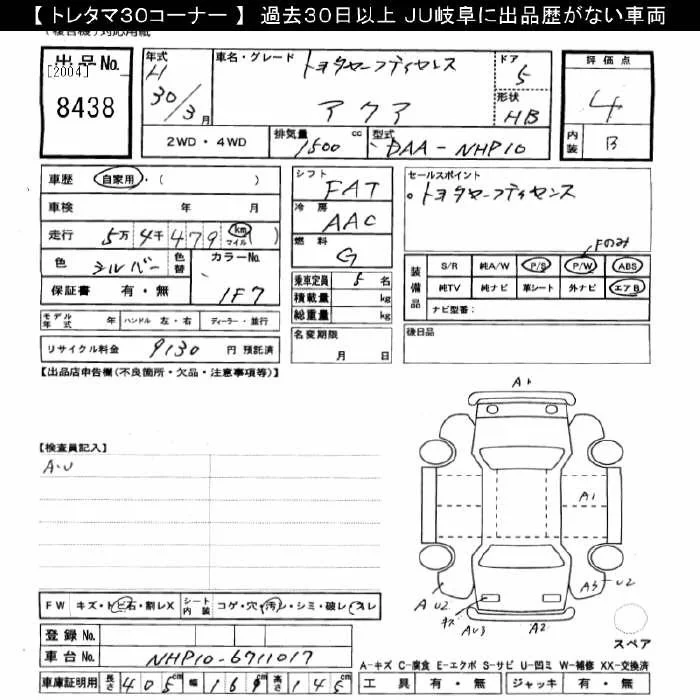 【 トレタマ30コーナー 】 過去30日以上 JU岐阜に出品歴がない車両
出品No.
[2004]
8438
年式
H
30/3月
車名・グレード
トヨタセーフティセンス
アクア
ドア
5
形状
HB
評価点
4
内装
B
2WD・4WD
排気量
1500
cc
型式
DAA-NHP10
車歴 自家用・( )
車検 年 月
走行 5万 4千 479 km マイル ( )
色 シルバー 色替 カラーNo. 1F7
保証書 有・無
モデル年式 年 ハンドル 左・右 ディーラー・並行
リサイクル料金 9130 円 預託済
シフト
FAT
冷房
AAC
燃料
G
乗車定員 5 名
積載量 kg
総重量 kg
名変期限
月 日
セールスポイント
。トヨタセーフティセンス
Fのみ
装備品
S/R 純A/W P/S P/W ABS
純TV 純ナビ 革シート 外ナビ エアB
ナビ型番:
後日品
【出品店申告欄(不良箇所・欠品・注意事項等)】
【検査員記入】
A・U
A1
A1
A U2
キズ
AU3
A2
A3 U2
スペア
FW キズ・トビ石・割レX シート内装 コゲ・穴・汚レ・シミ・破レ・スレ
登録No.
車台No. NHP10-6711017
A-キズ C-腐食 E-エクボ S-サビ U-凹ミ W-補修 XX-交換済
車庫証明用 長さ 405cm 幅 169cm 高さ 145cm
工具 有・無 ジャッキ 有・無